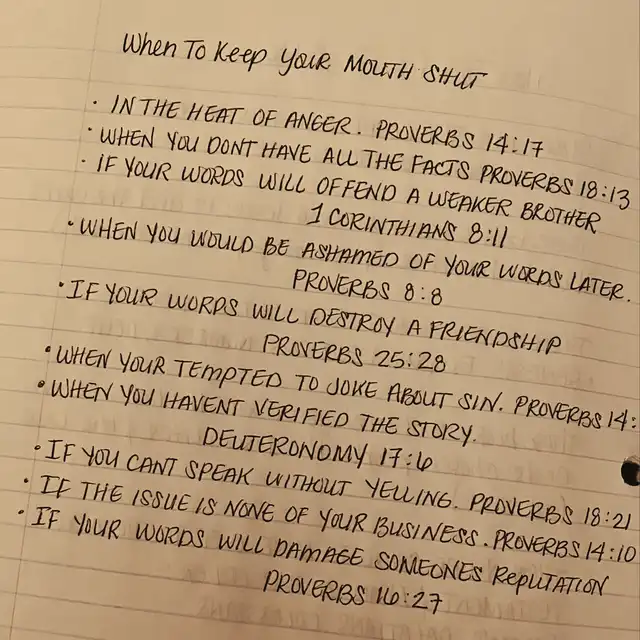 When To Keep Your Mouth Shut
· IN THE HEAT OF ANGER. PROVERBS 14:17
· WHEN YOU DONT HAVE ALL THE FACTS PROVERBS 18:13
· IF YOUR WORDS WILL OFFEND A WEAKER BROTHER
1 CORINTHIANS 8:11
· WHEN YOU WOULD BE ASHAMED OF YOUR WORDS LATER.
PROVERBS 8:8
· IF YOUR WORDS WILL DESTROY A FRIENDSHIP
PROVERBS 25:28
· WHEN YOUR TEMPTED TO JOKE ABOUT SIN. PROVERBS 14:
· WHEN YOU HAVENT VERIFIED THE STORY.
DEUTERONOMY 17:6
· IF YOU CANT SPEAK WITHOUT YELLING. PROVERBS 18:21
· IF THE ISSUE IS NONE OF YOUR BUSINESS. PROVERBS 14:10
· IF YOUR WORDS WILL DAMAGE SOMEONES REPUTATION
PROVERBS 16:27